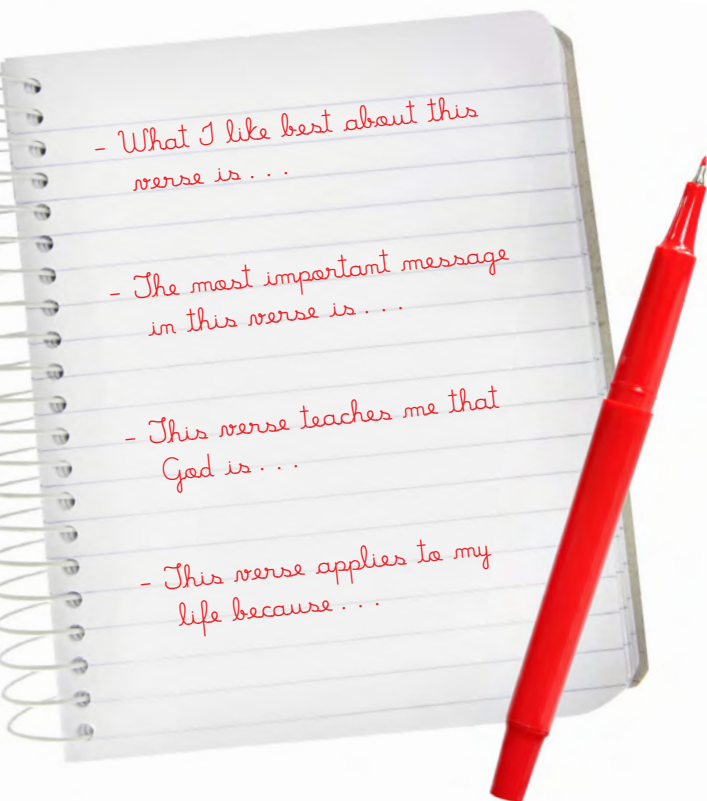 - What I like best about this
verse is . . .
- The most important message
in this verse is . . .
- This verse teaches me that
God is . . .
- This verse applies to my
life because . . .